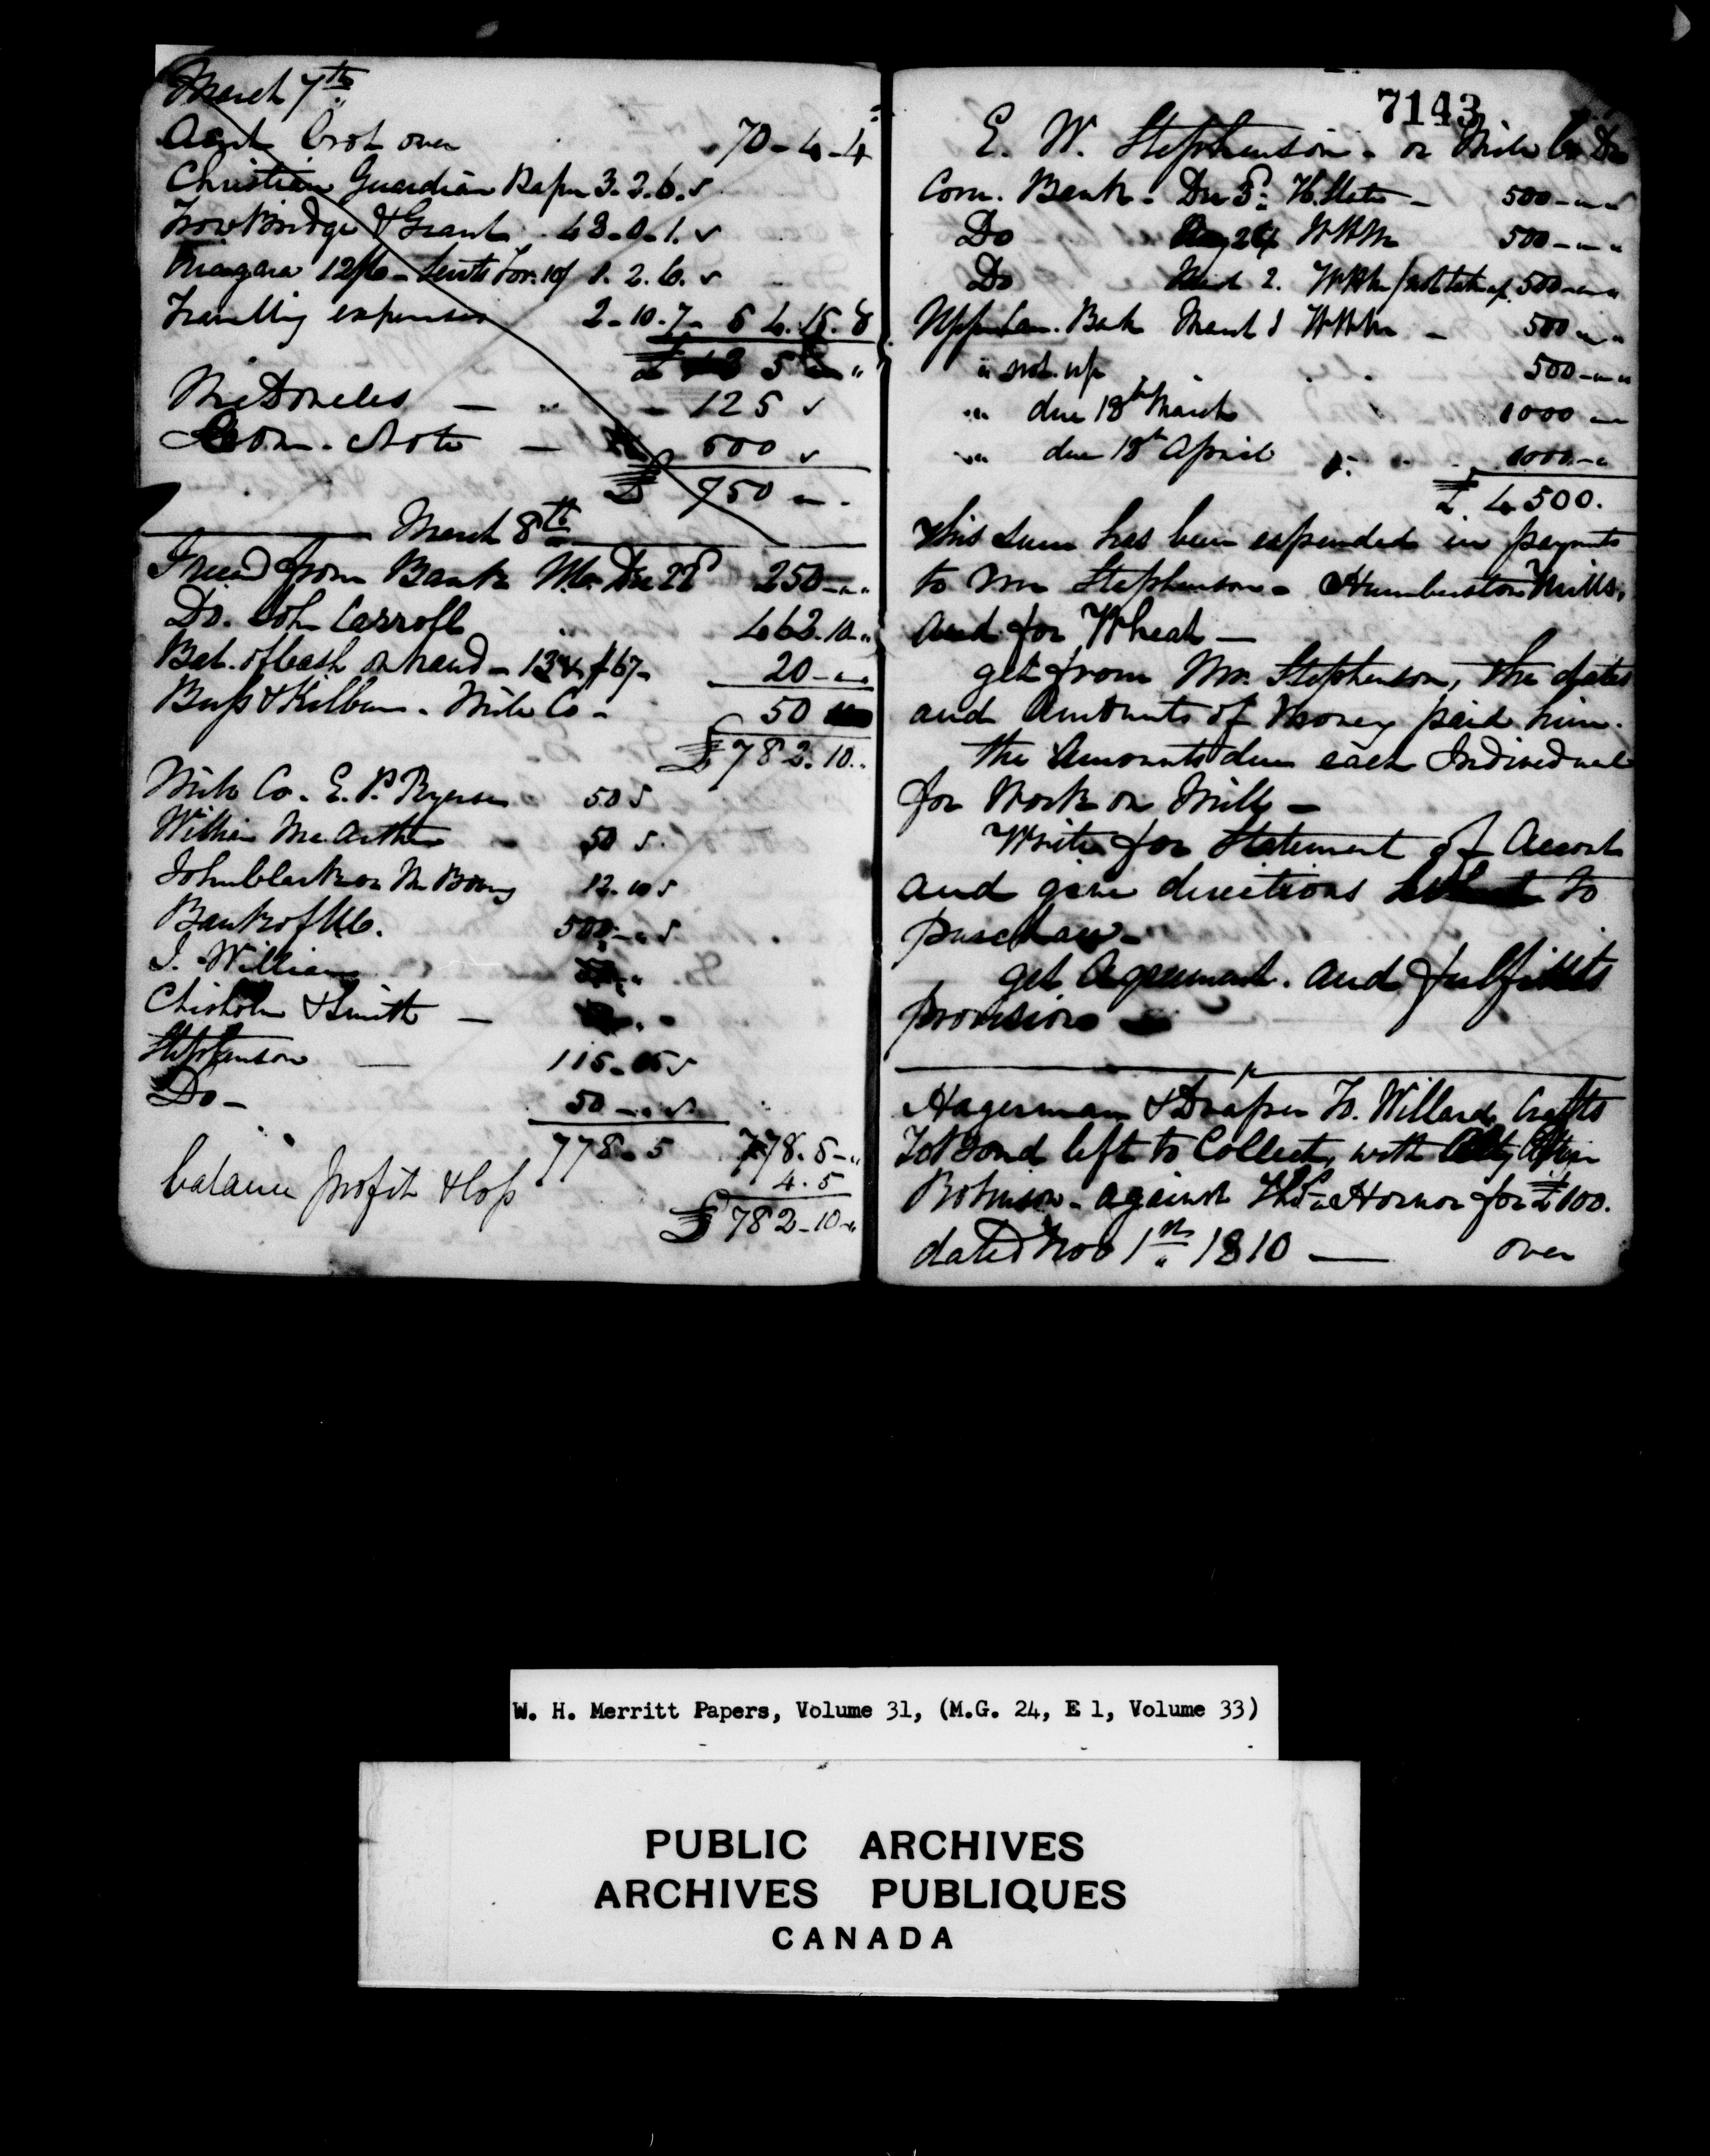 March 7th
Acct brot over 70-4-4
Christian Guardian Paper 3.2.6.
TrowBridge & Grant 43.0.1.
Niagara 12/6 - 10/ 1.2.6.
Travelling expenses 2-10-7-
125
Com. Note 500
£ 750
March 8th
I recd from Bank 250
Do. John Carroll 462.10
Bal. of Cash on hand - 20
50
£782.10
Co. E. P. Ryerson 50
William McArthur 50
John Clark on 12.10
Bank of U.C. 500
J. William
Chisholm & Smith -
Stephenson 115-
Do - 50
778-5 778.5
balance profit & loss 4.5
£782-10
7143
E. W. Stephenson - or Dr
Com. Bank - 500
Do 24 WHM 500
Do 2. WHM 500
Upper Can. Bank March WHM - 500
" not up 500
" due 18th March 1000
" due 18th April 1000
£ 4500.
This Sum has been expended in payments
to Mr Stephenson - Humberston Mills,
and for Wheat -
get from Mr. Stephenson, the dates
and Amounts of Money paid him.
the Amounts due each Individual
for Work on Mills -
Write for Statement of Account
and give directions to
purchase -
get Agreement. and fulfill its
provisions
Hagerman & Draper Willard Crafts
Bond left to Collect, with
Robinson - against Thos Hornor for £100.
dated Nov 1st 1810 — over
W. H. Merritt Papers, Volume 31, (M.G. 24, E 1, Volume 33)
PUBLIC ARCHIVES
ARCHIVES PUBLIQUES
CANADA